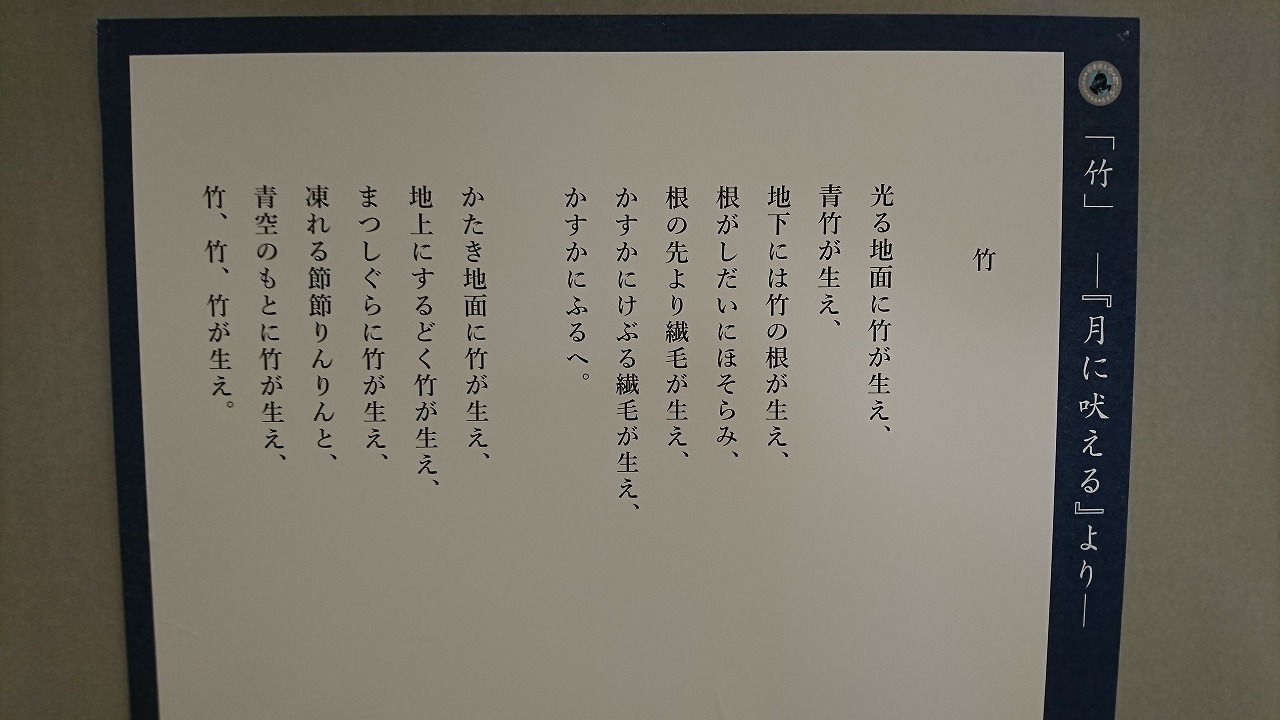 「竹」 ―『月に吠える』より―
竹
光る地面に竹が生え、
青竹が生え、
地下には竹の根が生え、
根がしだいにほそらみ、
根の先より繊毛が生え、
かすかにけぶる繊毛が生え、
かすかにふるへ。
かたき地面に竹が生え、
地上にするどく竹が生え、
まつしぐらに竹が生え、
凍れる節節りんりんと、
青空のもとに竹が生え、
竹、竹、竹が生え。